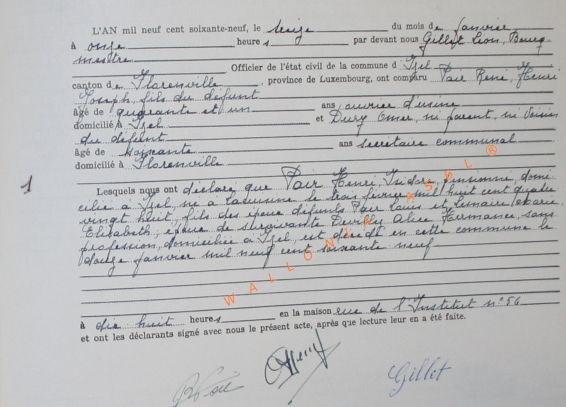 L'AN mil neuf cent soixante-neuf, le seize du mois de janvier
à onze heures par devant nous Gillet Léon, Bourg-
mestre Officier de l'état civil de la commune d'Izel
canton de Florenville, province de Luxembourg, ont comparu Pair René, Henri
Joseph, fils du défunt
âgé de quarante et un ans ouvrier d'usine
domicilié à Izel et Dury Omer, ni parent, ni voisin
du défunt
âgé de soixante ans secrétaire communal
domicilié à Florenville
1
Lesquels nous ont déclaré que Pair Henri, Isidore, pensionné, domi-
cilié à Izel, né à le trois février mil huit cent quatre
vingt huit, fils des époux défunts Pair Louis et Lemaire Marie
Elisabeth; époux de survivante Alice Hermance, sans
profession, domiciliée à Izel, est décédé en cette commune le
douze janvier mil neuf cent soixante neuf
WALLONIA ASBL ®
à dix huit heures en la maison rue de l'Institut n° 56
et ont les déclarants signé avec nous le présent acte, après que lecture leur en a été faite.
Gillet